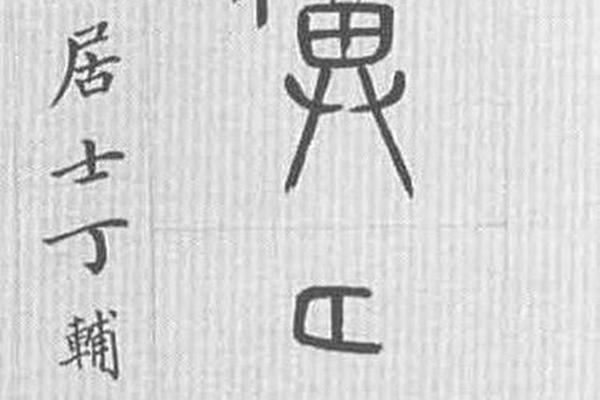 異
居士丁輔